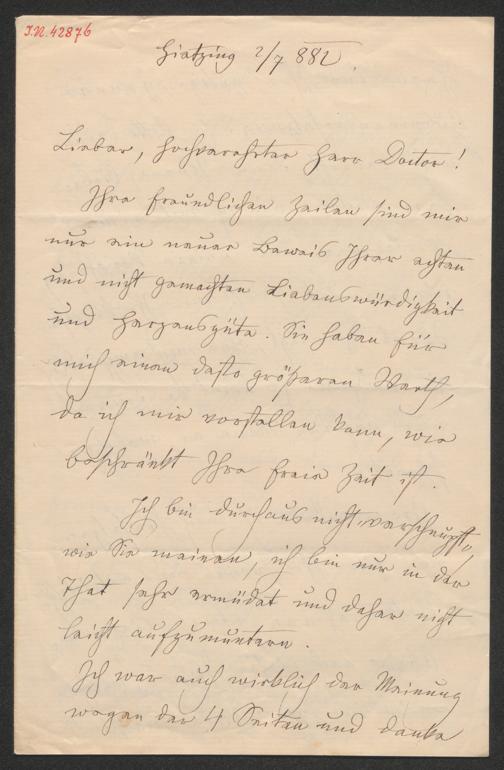 I.N. 42876
Hietzing 2/7 882.
Lieber, hochverehrter Herr Doctor!
Ihre freundlichen Zeilen sind mir
nur ein neuer Beweis Ihrer echten
und nicht gemachten Liebenswürdigkeit
und Herzensgüte. Sie haben für
mich einen desto größeren Werth,
da ich mir vorstellen kann, wie
beschränkt Ihre freie Zeit ist.
Ich bin durchaus nicht „verschnupft",
wie Sie meinen, ich bin nur in der
That sehr ermüdet und daher nicht
leicht aufzumuntern.
Ich war auch wirklich der Meinung
wegen der 4 Seiten und danke